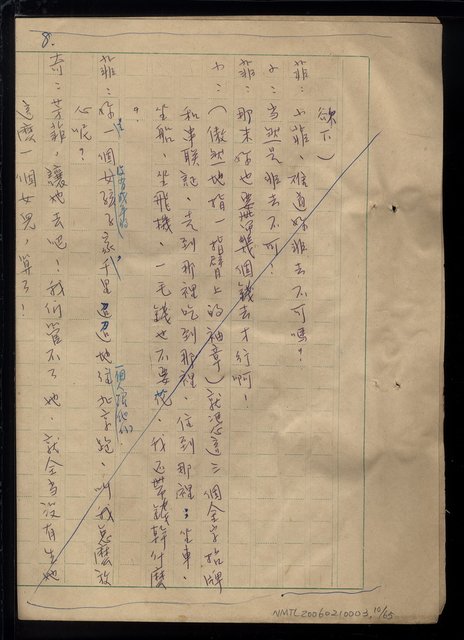 8.
欲下）
菲：小菲、难道妳非去不可嗎？
小：当然是非去不可！
菲：那末妳也要帶幾個錢去才行啊！
小：（傲然地指一指臂上的袖章）就憑這三個金字招牌
和串联証、走到那裡吃到那裡、住到那裡；坐車、
坐船、坐飛機、一毛錢也不要花、我还帶錢幹什麼
？
菲：妳一個女孩子家千里迢迢地往北京跑、叫我怎麼放
心呢？
奇：芳菲、讓她去吧！我们管不了她、就全当沒有生她
這麼一個女兒，算了！
NMTL20060210003, 10/65